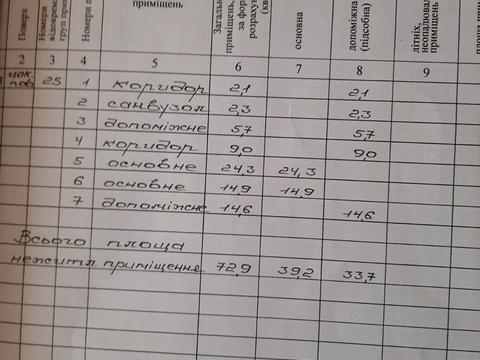 Поверх
Номери
відокрем.
груп прим
Номери п
приміщень
Загаль
приміщень,
за фор
розрахун
(кв
основна
допоміжна
(підсобна)
літніх,
неопалюва
приміщень
2 3 4 5 6 7 8 9
цок. 25 1 коридор 2,1 2,1
пов
2 санвузол 2,3 2,3
3 допоміжне 5,7 5,7
4 коридор 9,0 9,0
5 основне 24,3 24,3
6 основне 14,9 14,9
7 допоміжне 14,6 14,6
Всього площа
нежитл. приміщення 72,9 39,2 33,7